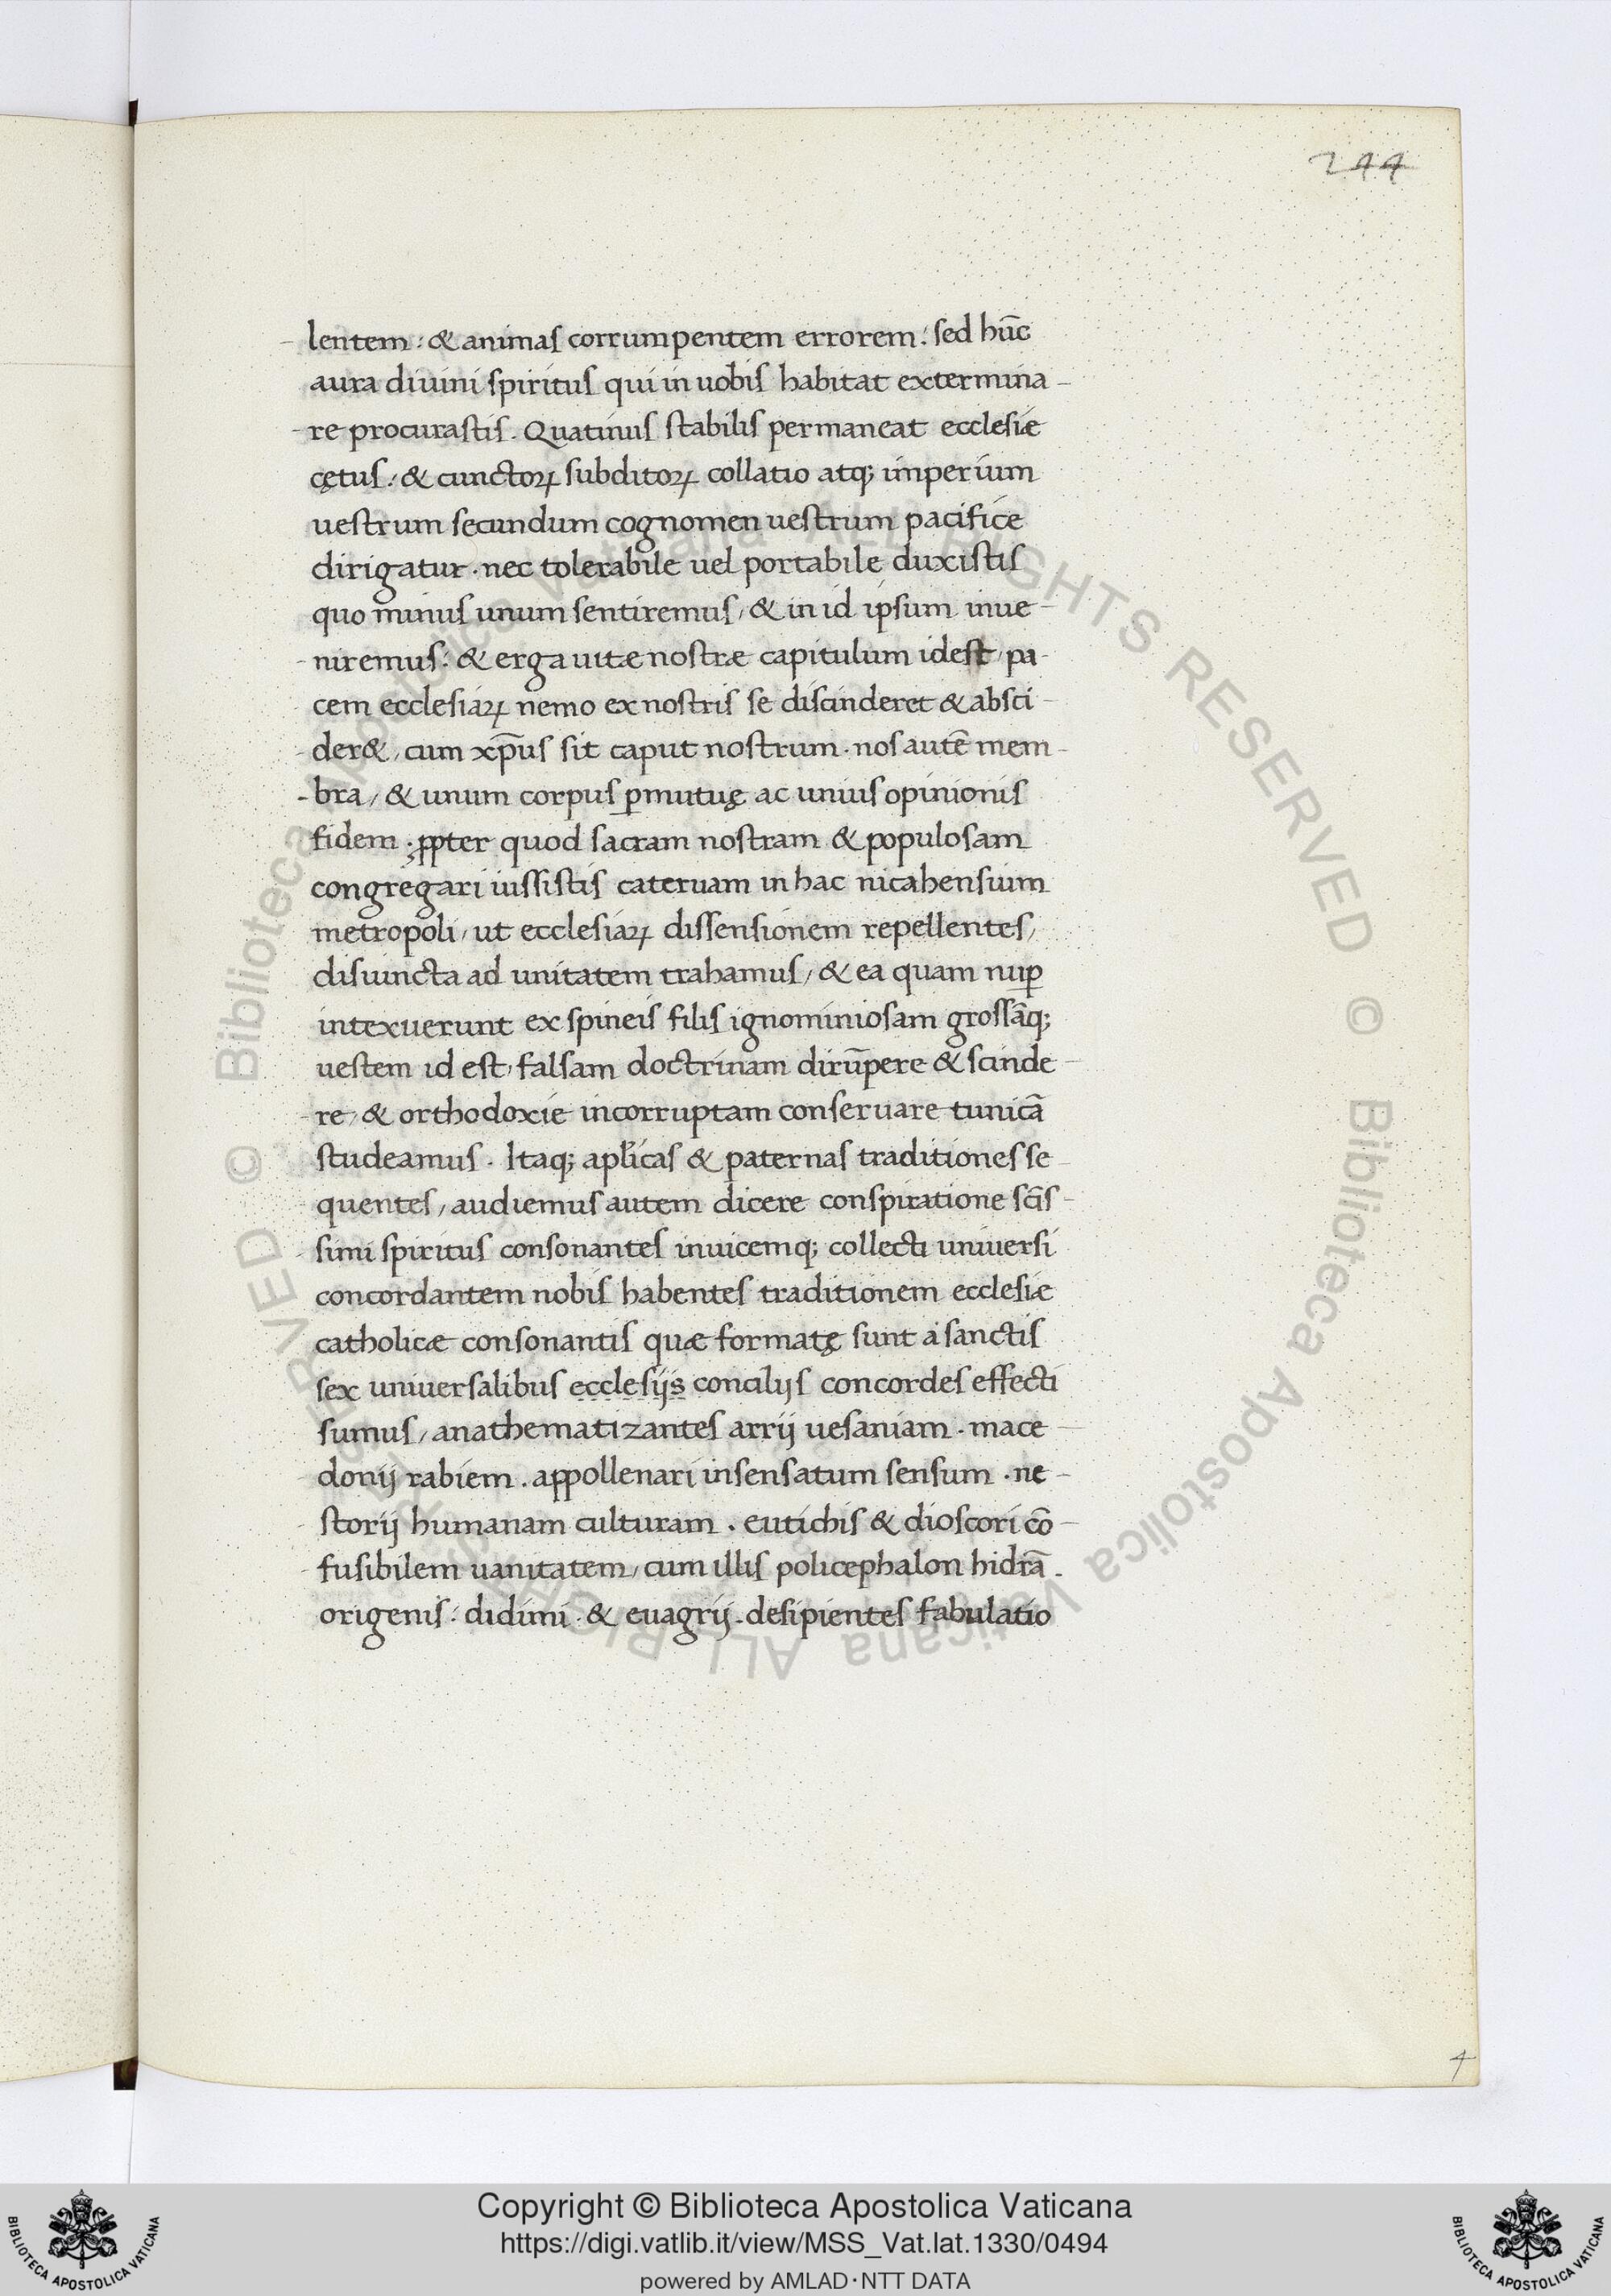 244
lentem: & animas corrumpentem errorem: sed hūc
aura diuini spiritus qui in uobis habitat extermina-
re procurastis. Quatinus stabilis permaneat ecclesiæ
cętus: & cunctoꝝ subditoꝝ collatio atq; imperium
uestrum secundum cognomen uestrum pacifice
dirigatur. nec tolerabile uel portabile duxistis
quo minus unum sentiremus, & in id ipsum inue-
niremus: & erga uitæ nostræ capitulum idest, pa-
cem ecclesiaꝝ nemo ex nostris se discinderet & absci-
der&, cum xp̄us sit caput nostrum. nos autē mem-
bra, & unum corpus ꝑmutuę ac unius opinionis
fidem. ꝓpter quod sacram nostram & populosam
congregari iussistis cateruam in hac nicahensium
metropoli, ut ecclesiaꝝ dissensionem repellentes,
disiuncta ad unitatem trahamus, & ea quam nuꝑ
intexuerunt ex spineis filis ignominiosam grossāq;
uestem id est, falsam doctrinam dirūpere & scinde-
re, & orthodoxie incorruptam conseruare tunicā
studeamus. Itaq; apl̄icas & paternas traditiones se-
quentes, audiemus autem dicere conspiratione sc̄is-
simi spiritus consonantes inuicemq; collecti uniuersi
concordantem nobis habentes traditionem ecclesiæ
catholicæ consonantis quæ formatę sunt a sanctis
sex uniuersalibus ecclesijs concilijs concordes effecti
sumus, anathematizantes arrij uesaniam. mace-
donij rabiem. appollenari insensatum sensum. ne-
storij humanam culturam. eutichis & dioscori cō-
fusibilem uanitatem, cum illis policephalon hidrā.
origenis: didimi. & euagrij. desipientes fabulatio
4
© Biblioteca Apostolica Vaticana ALL RIGHTS RESERVED © Biblioteca Apostolica Vaticana ALL RIGHTS RESERVED
Copyright © Biblioteca Apostolica Vaticana
https://digi.vatlib.it/view/MSS_Vat.lat.1330/0494
powered by AMLAD·NTT DATA
BIBLIOTECA APOSTOLICA VATICANA
BIBLIOTECA APOSTOLICA VATICANA